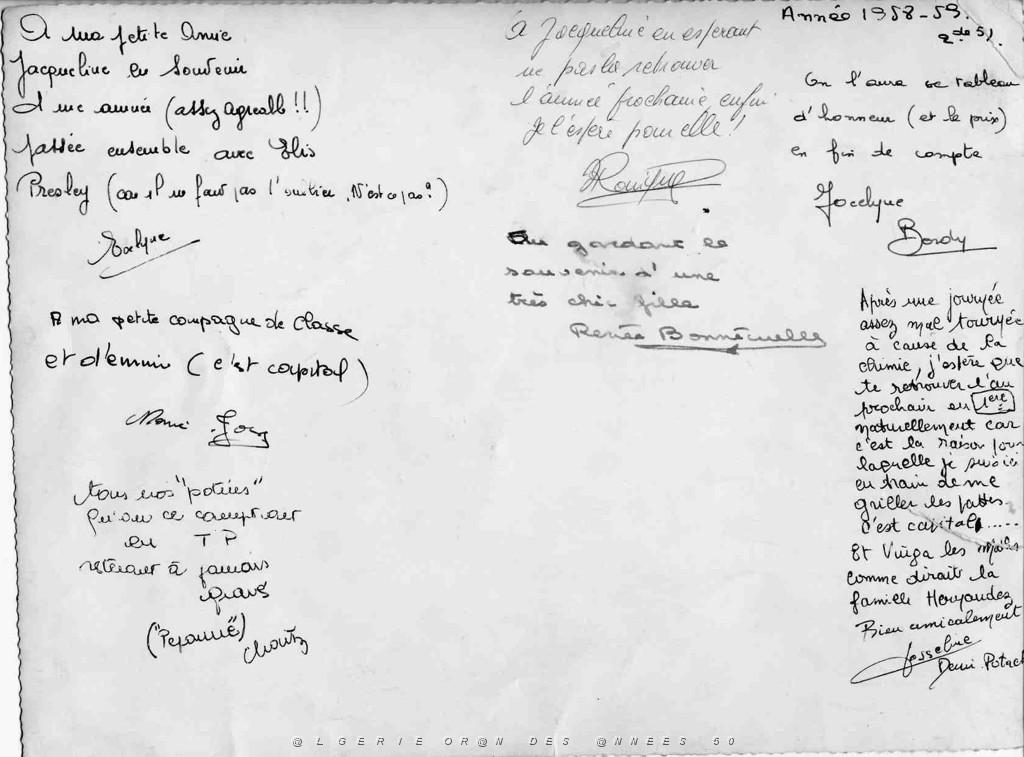 A ma petite Amie
Jacqueline en Souvenir
d'une année (assez agréabl!!)
passée ensemble avec Elvis
Presley (car il ne faut pas l'oublier, N'est ce pas?)
Evelyne
A ma petite compagne de classe
et d'ennui (c'est capital)
tous nos "potins"
qu'on se
en T P
à jamais
gravés
À Jacqueline en espérant
ne pas la retrouver
l'année prochaine enfin
Je l'espère pour elle!
Monique
En gardant le
souvenir d'une
très chic fille
Renée
Année 1958-59.
2de S1.
On l'aura ce tableau
d'honneur (et le prix)
en fin de compte
Jocelyne
Bordy
Après une journée
assez mal tournée
à cause de la
chimie, j'espère que
te retrouver l'an
prochain en 1ère
naturellement car
c'est la raison pour
laquelle je suis ici
en train de me
griller les pattes
c'est capital.....
Et Viva les
comme dirait la
famille Hernandez
Bien amicalement
Josseline
Demi Potach
@LGERIE OR@N DES @NNEES 50